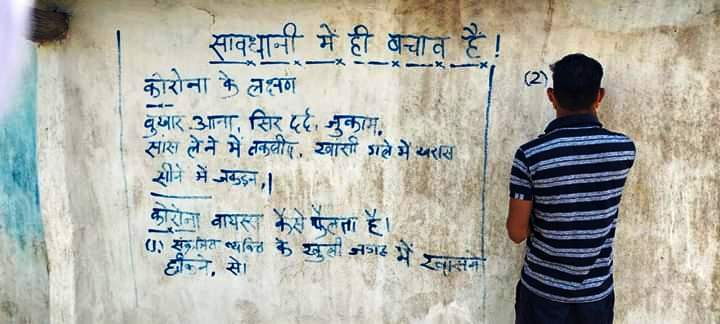 सावधानी में ही बचाव है !
कोरोना के लक्षण
बुखार आना, सिर दर्द, जुकाम,
सास लेने में तकलीफ, खांसी गले में खरास
सीने में जकड़न,।
कोरोना वायरस कैसे फैलता है।
(1) संक्रमित व्यक्ति के खुली जगह में खासने
छीकने, से।
(2)